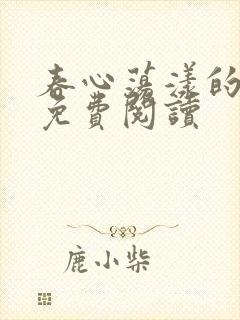 春心蕩漾的
免費閱讀
鹿小柴